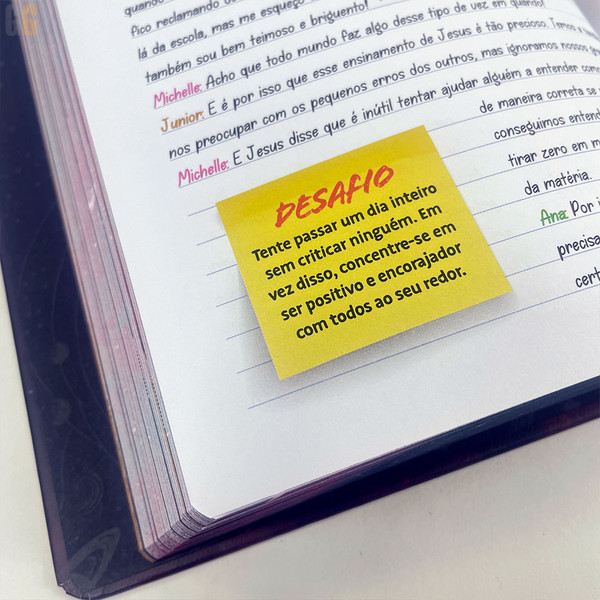 quando
fico reclamando
lá da escola, mas me esqueço
também sou bem teimoso e briguento!
Michelle: Acho que todo mundo faz algo desse tipo de vez em quando!
Junior: E é por isso que esse ensinamento de Jesus é tão precioso.
nos preocupar com os pequenos erros dos outros, mas ignoramos nossos
Michelle: E Jesus disse que é inútil tentar ajudar alguém a entender
de maneira correta se
conseguimos
tirar zero em
da matéria.
Ana: Por
precisa
DESAFIO
Tente passar um dia inteiro
sem criticar ninguém. Em
vez disso, concentre-se em
ser positivo e encorajador
com todos ao seu redor.